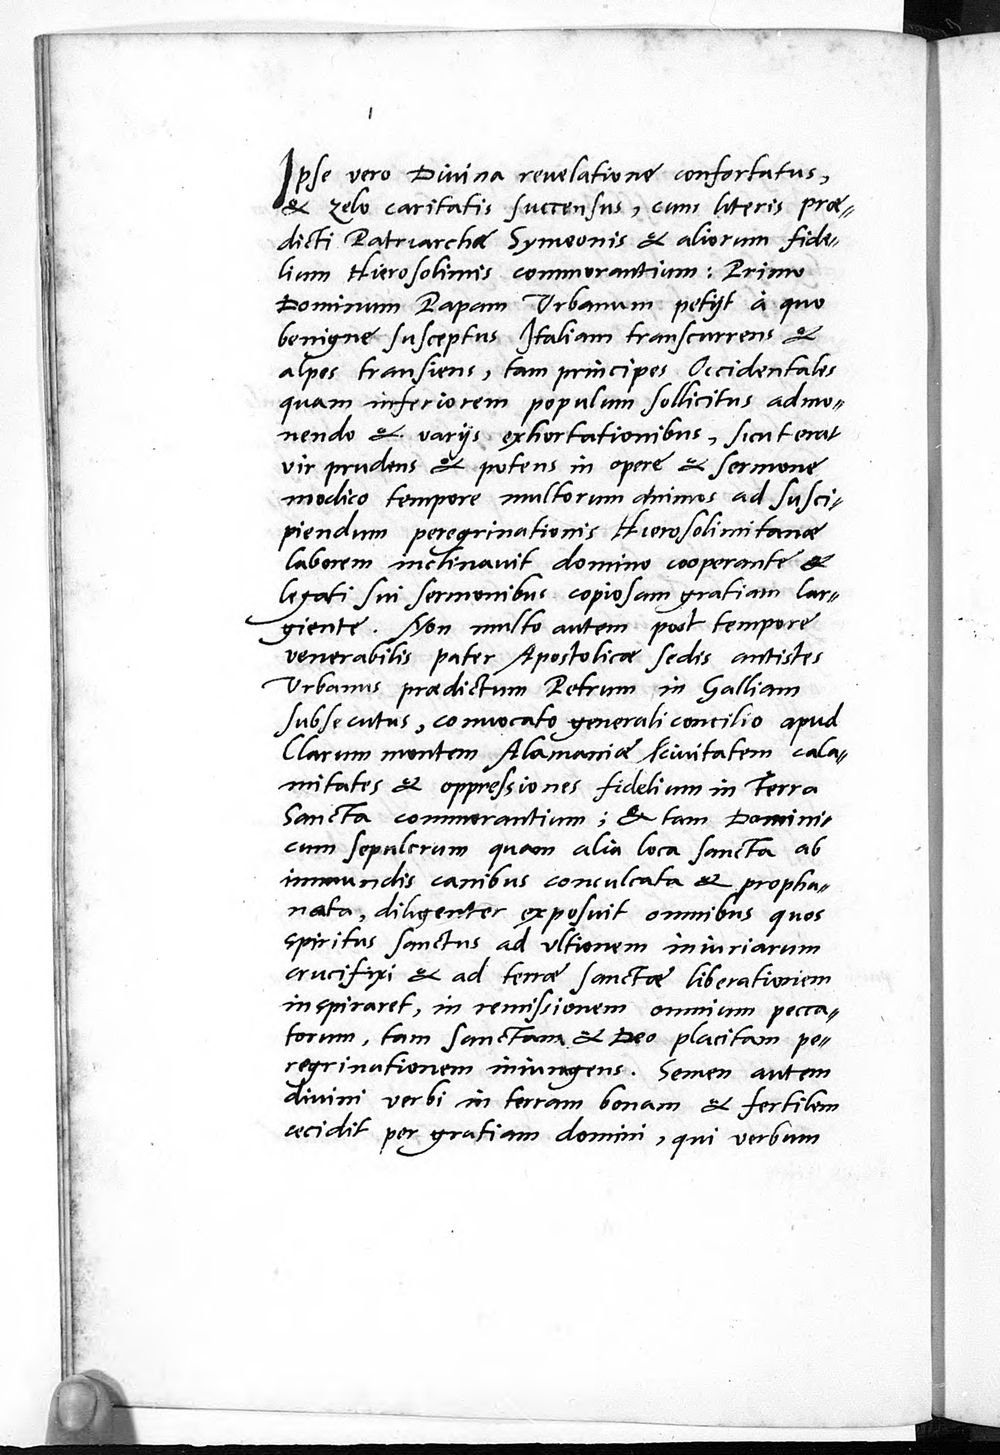 Ipse vero Divina reuelatione confortatus,
& zelo caritatis succensus, cum literis præ-
dicti Patriarchæ Symeonis & aliorum fide-
lium Hierosolimis commorantium: Primo
Dominum Papam Vrbanum petijt à quo
benigne susceptus Italiam transcurrens &
alpes transiens, tam principes Occidentales
quam inferiorem populum sollicitus admo-
nendo & varijs exhortationibus, sicut erat
vir prudens & potens in opere & sermone
modico tempore multorum animos ad susci-
piendum peregrinationis Hierosolimitanæ
laborem inclinauit domino cooperante &
legati sui sermonibus copiosam gratiam lar-
giente. Non multo autem post tempore
venerabilis pater Apostolicæ sedis antistes
Vrbanus prædictum Petrum in Galliam
subsecutus, conuocato generali concilio apud
Clarum montem Alamaniæ ciuitatem cala-
mitates & oppressiones fidelium in Terra
Sancta commorantium; & tam Domini-
cum sepulcrum quam alia loca sancta ab
immundis canibus conculcata & propha-
nata, diligenter exposuit omnibus quos
spiritus sanctus ad vltionem iniuriarum
crucifixi & ad terræ sanctæ liberationem
inspiraret, in remissionem omnium pecca-
torum, tam sanctam & Deo placitam pe-
regrinationem iniungens. Semen autem
diuini verbi in terram bonam & fertilem
cecidit per gratiam domini, qui verbum